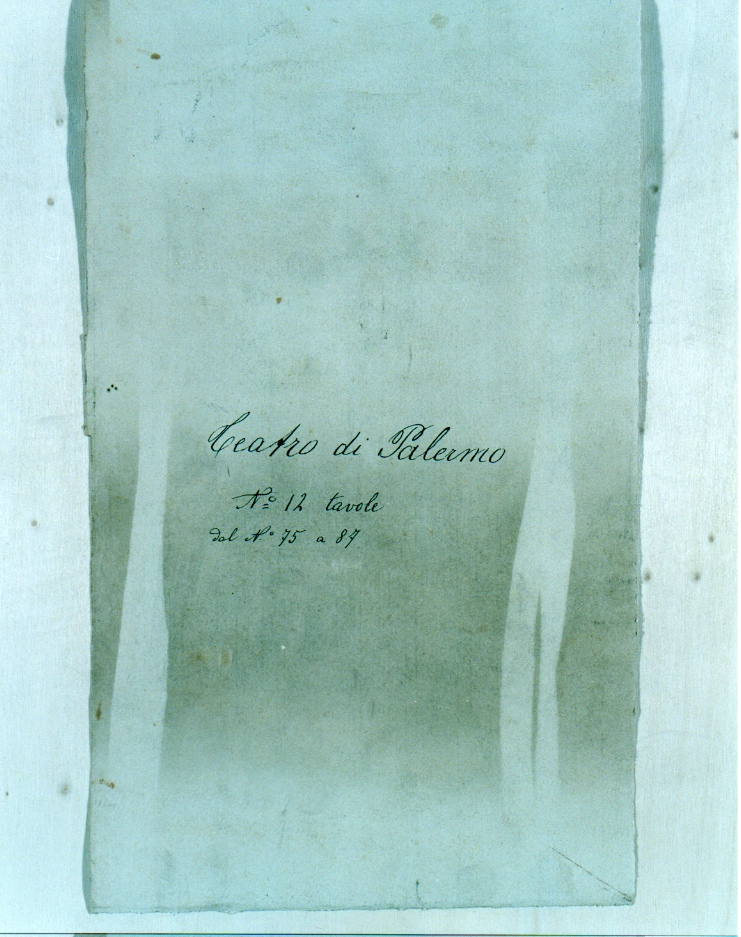 Teatro di Palermo
Nº 12 tavole
dal Nº 75 a 87